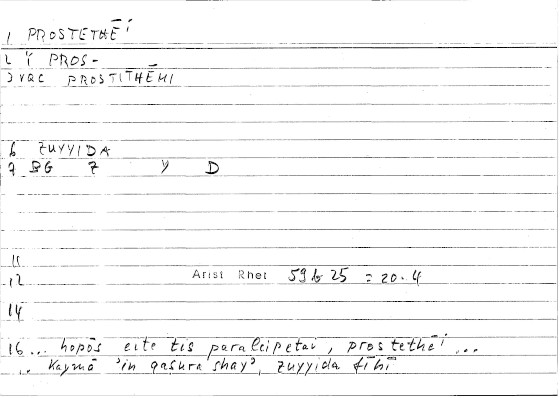 1 PROSTETHĒÍ
2 Ý PROS-
3 VAC PROSTITHĒMI
6 ZUYYIDA
7 BG Z Y D
11
12 Arist Rhet 59 b 25 = 20.4
14
16 ... hopōs eite tis paraleipetai, prostethēí ...
.. kaymā 'in qaṣura shay', zuyyida fīhi